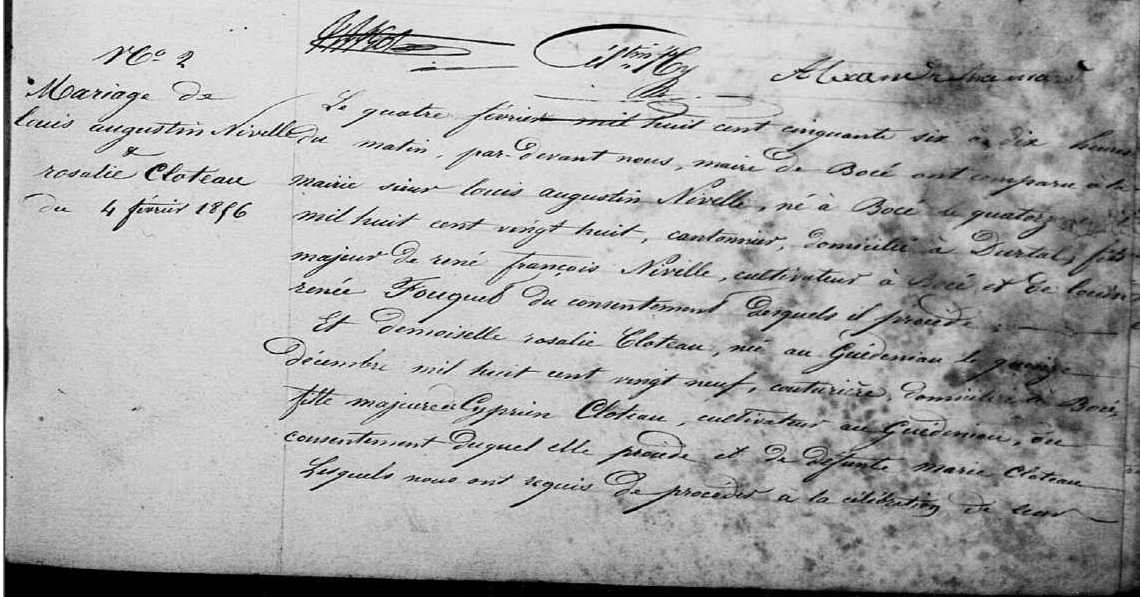 No. 2
Mariage de
louis augustin Nivelle
&
rosalie Cloteau
du 4 février 1856
Le quatre février mil huit cent cinquante six à dix heures
du matin, par-devant nous, maire de Bocé ont comparu à la
mairie sieur louis augustin Nivelle, né à Bocé le quatorze
mil huit cent vingt huit, cantonnier, domicilié à Durtal, fils
majeur de rené françois Nivelle, cultivateur à Bocé et de louise
renée Fouquet du consentement desquels il procède.
Et demoiselle rosalie Cloteau, née au Guédeniau le quinze
décembre mil huit cent vingt neuf, couturière, domiciliée à Bocé,
fille majeure de Cyprien Cloteau, cultivateur au Guédeniau, du
consentement duquel elle procède et de défunte marie Cloteau
Lesquels nous ont requis de procéder à la célébration de leur